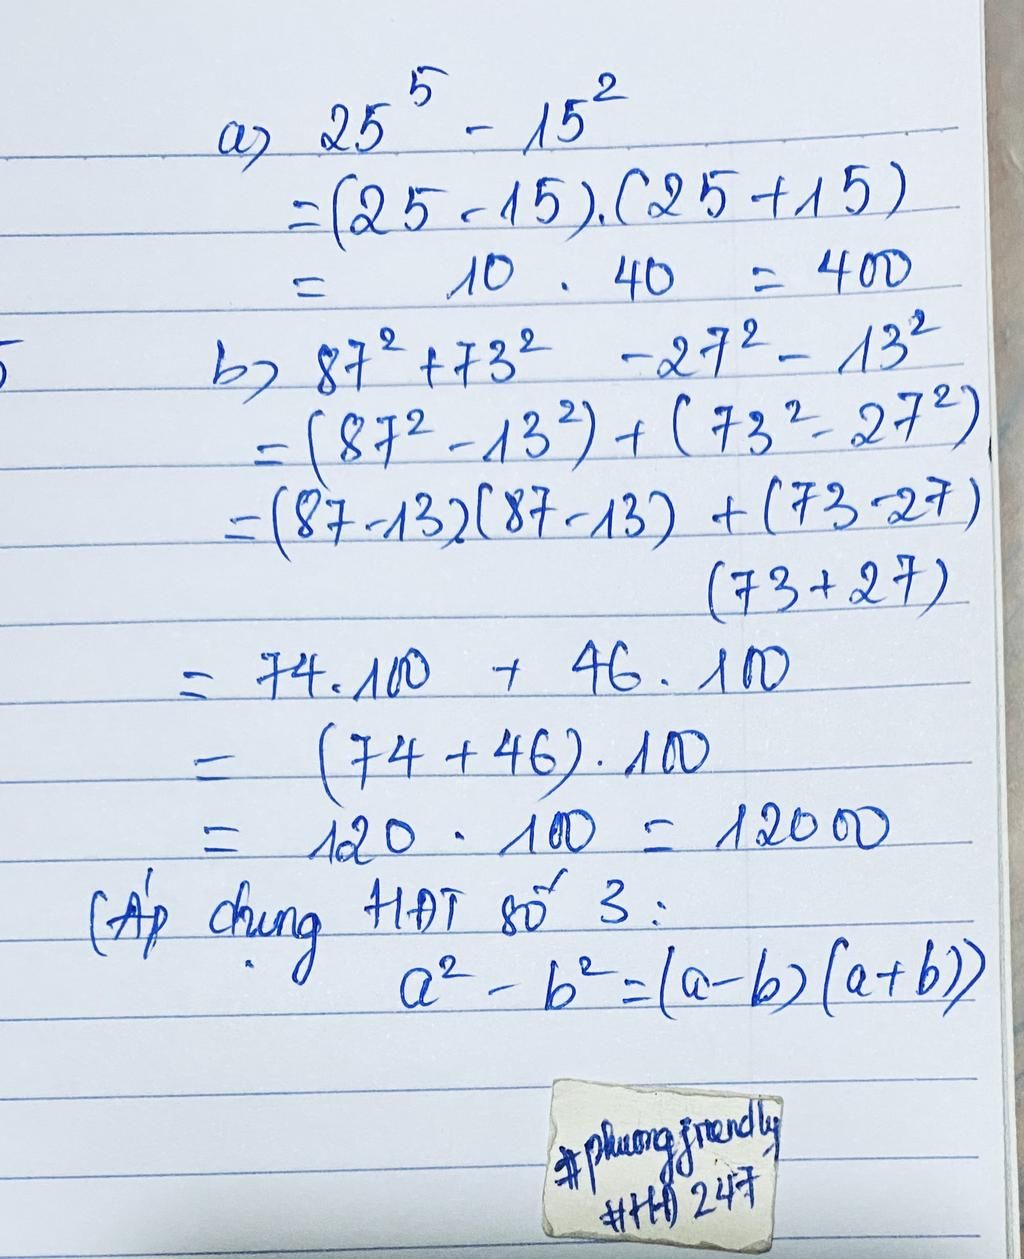 a) 25⁵ - 15²
= (25 - 15).(25 + 15)
= 10 . 40 = 400
b) 87² + 73² - 27² - 13²
= (87² - 13²) + (73² - 27²)
= (87 - 13)(87 - 13) + (73 - 27)
(73 + 27)
= 74.100 + 46.100
= (74 + 46).100
= 120 . 100 = 12000
(Áp dụng HĐT số 3:
a² - b² = (a - b)(a + b))
#phuongfriendly
#HĐ 247